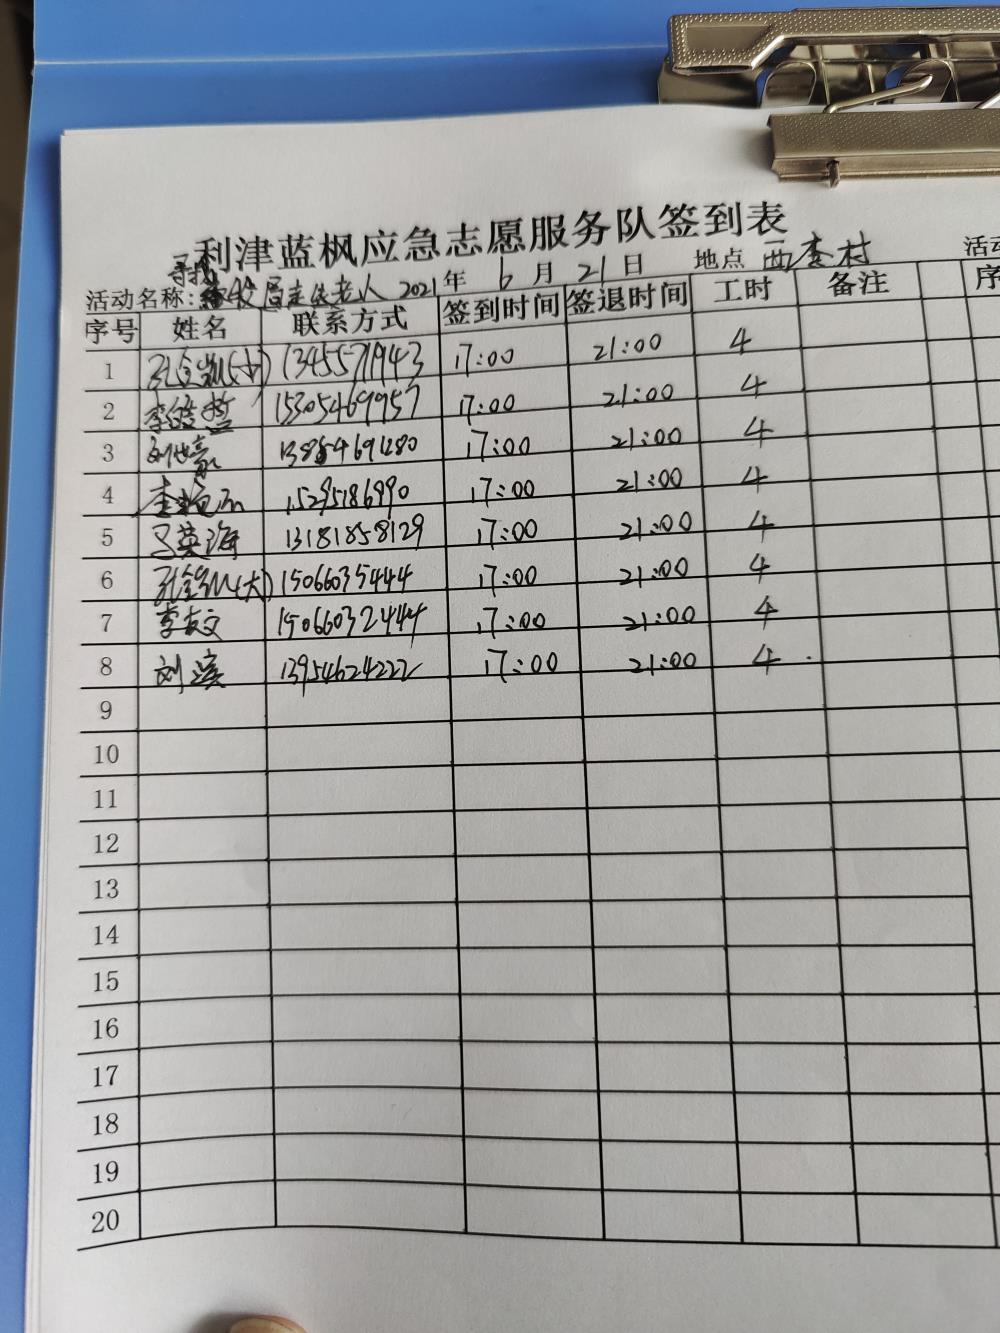 利津蓝枫应急志愿服务队签到表
寻找
活动名称: 牧局走失老人 2021年 6月21日 地点 西李村
活动
序号 姓名 联系方式 签到时间 签退时间 工时 备注
序
1 (小) 1345571943 17:00 21:00 4
2 李皓哲 15305469957 17:00 21:00 4
3 刘世豪 13854691480 17:00 21:00 4
4 李 15295186990 17:00 21:00 4
5 马英海 13181858129 17:00 21:00 4
6 (大) 15066035444 17:00 21:00 4
7 李友文 15066032444 17:00 21:00 4
8 刘滨 13954624222 17:00 21:00 4
9
10
11
12
13
14
15
16
17
18
19
20